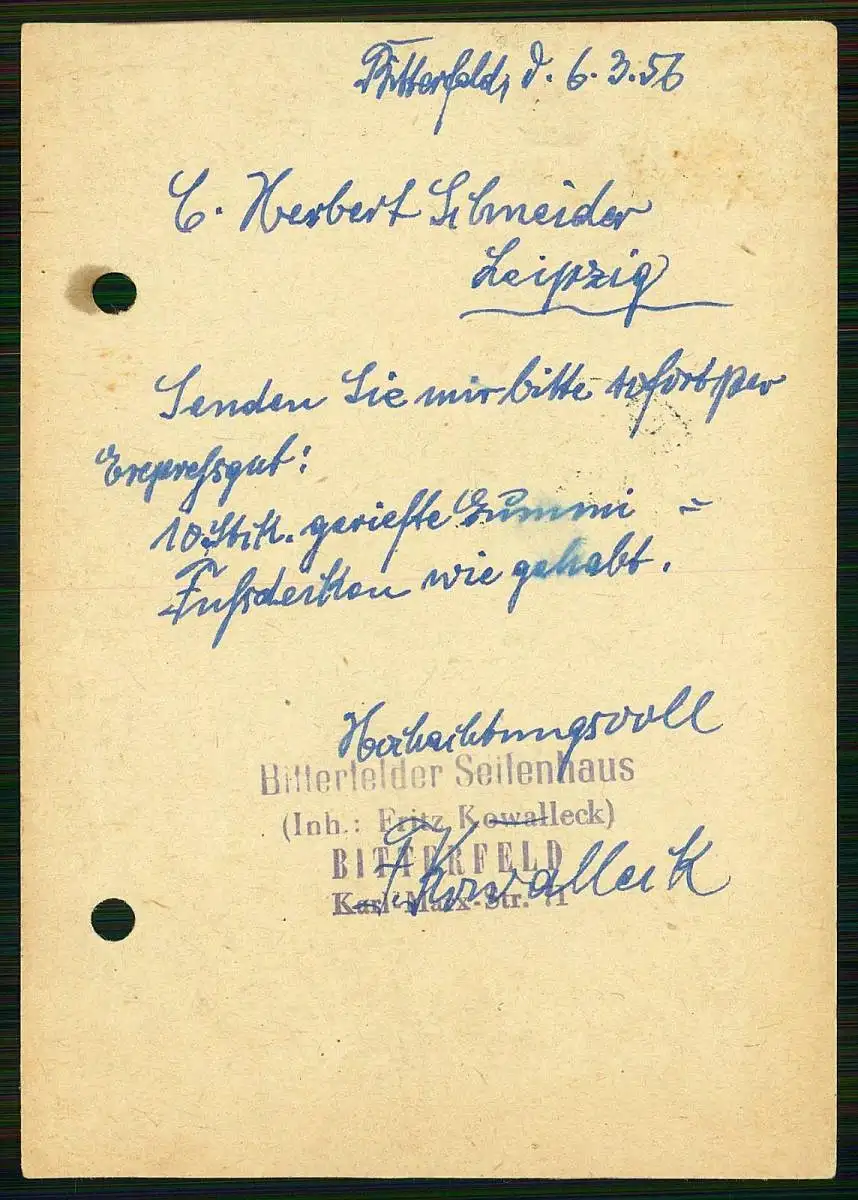 Bitterfeld, d. 6.3.56
C. Herbert Schneider
Leipzig
Senden Sie mir bitte sofort per
Expressgut:
10 Stck. geriefte Gummi =
Fußdecken wie gehabt.
Hochachtungsvoll
Bitterfelder Seilenhaus
(Inh.: Fritz Kowalleck)
BITTERFELD
Karl-Marx-Str. 71
FKowalleck